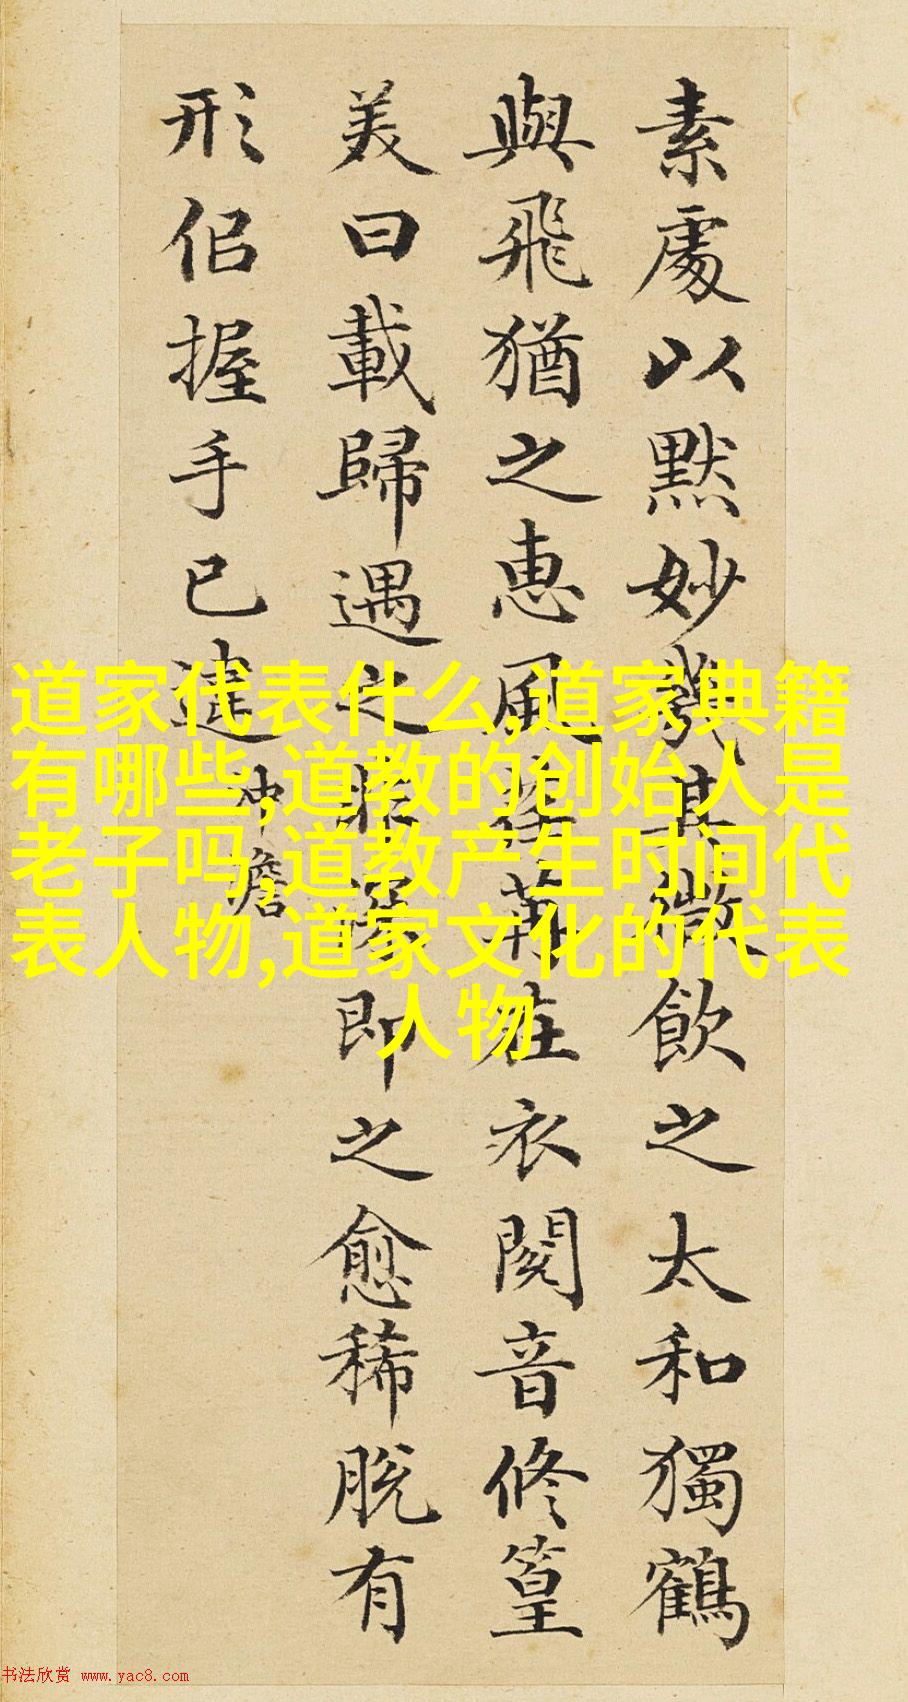 素處以默妙幾其微飲之太和獨鶴
與飛猶之惠風荏苒在衣閱音修篁
美曰載歸遇之匪深即之愈稀脫有
形佀握手已違
沖澹
道家代表什么,道家典籍
有哪些,道教的创始人是
老子吗,道教产生时间代
表人物,道家文化的代表
人物
书法欣赏 www.yac8.com